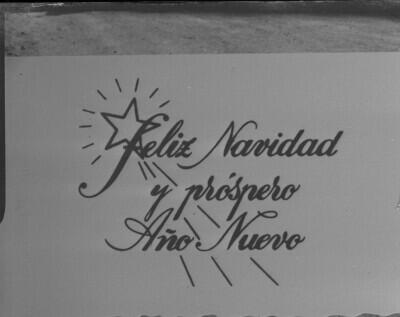 Feliz Navidad
y próspero
Año Nuevo